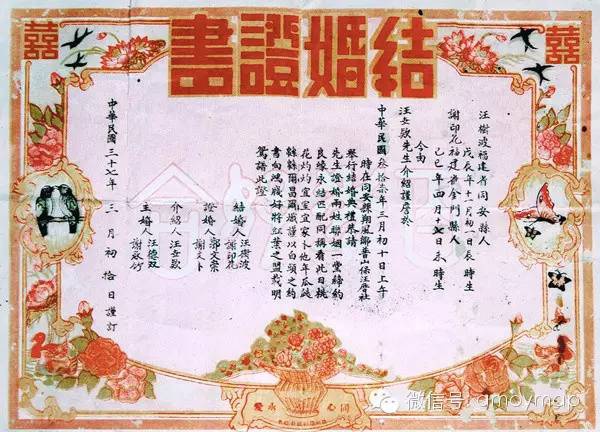 囍
結婚證書
囍
汪樹波福建省同安縣人
戊辰年十一月初一日辰時生
謝印花福建省金門縣人
己巳年四月十七日未時生
今由
汪文欵先生介紹謹詹於
中華民國叁拾柒年三月初十日上午
時在同安縣翔風鄉普山保汪厝社
舉行結婚典禮恭請
先生證婚兩姓聯姻一堂締約
良緣永結匹配同稱看此日桃
花灼灼宜室宜家卜他年瓜瓞
綿綿爾昌爾熾謹以白頭之約
書向鴻箋好將紅葉之盟載明
鴛譜此證
結婚人 汪樹波 謝印花
證婚人 郭文 謝文卜
介紹人 汪文欵
主婚人 汪德双 謝永竹
中華民國三十七年 三月初拾日謹訂
同心 永愛
微信号: amoymap